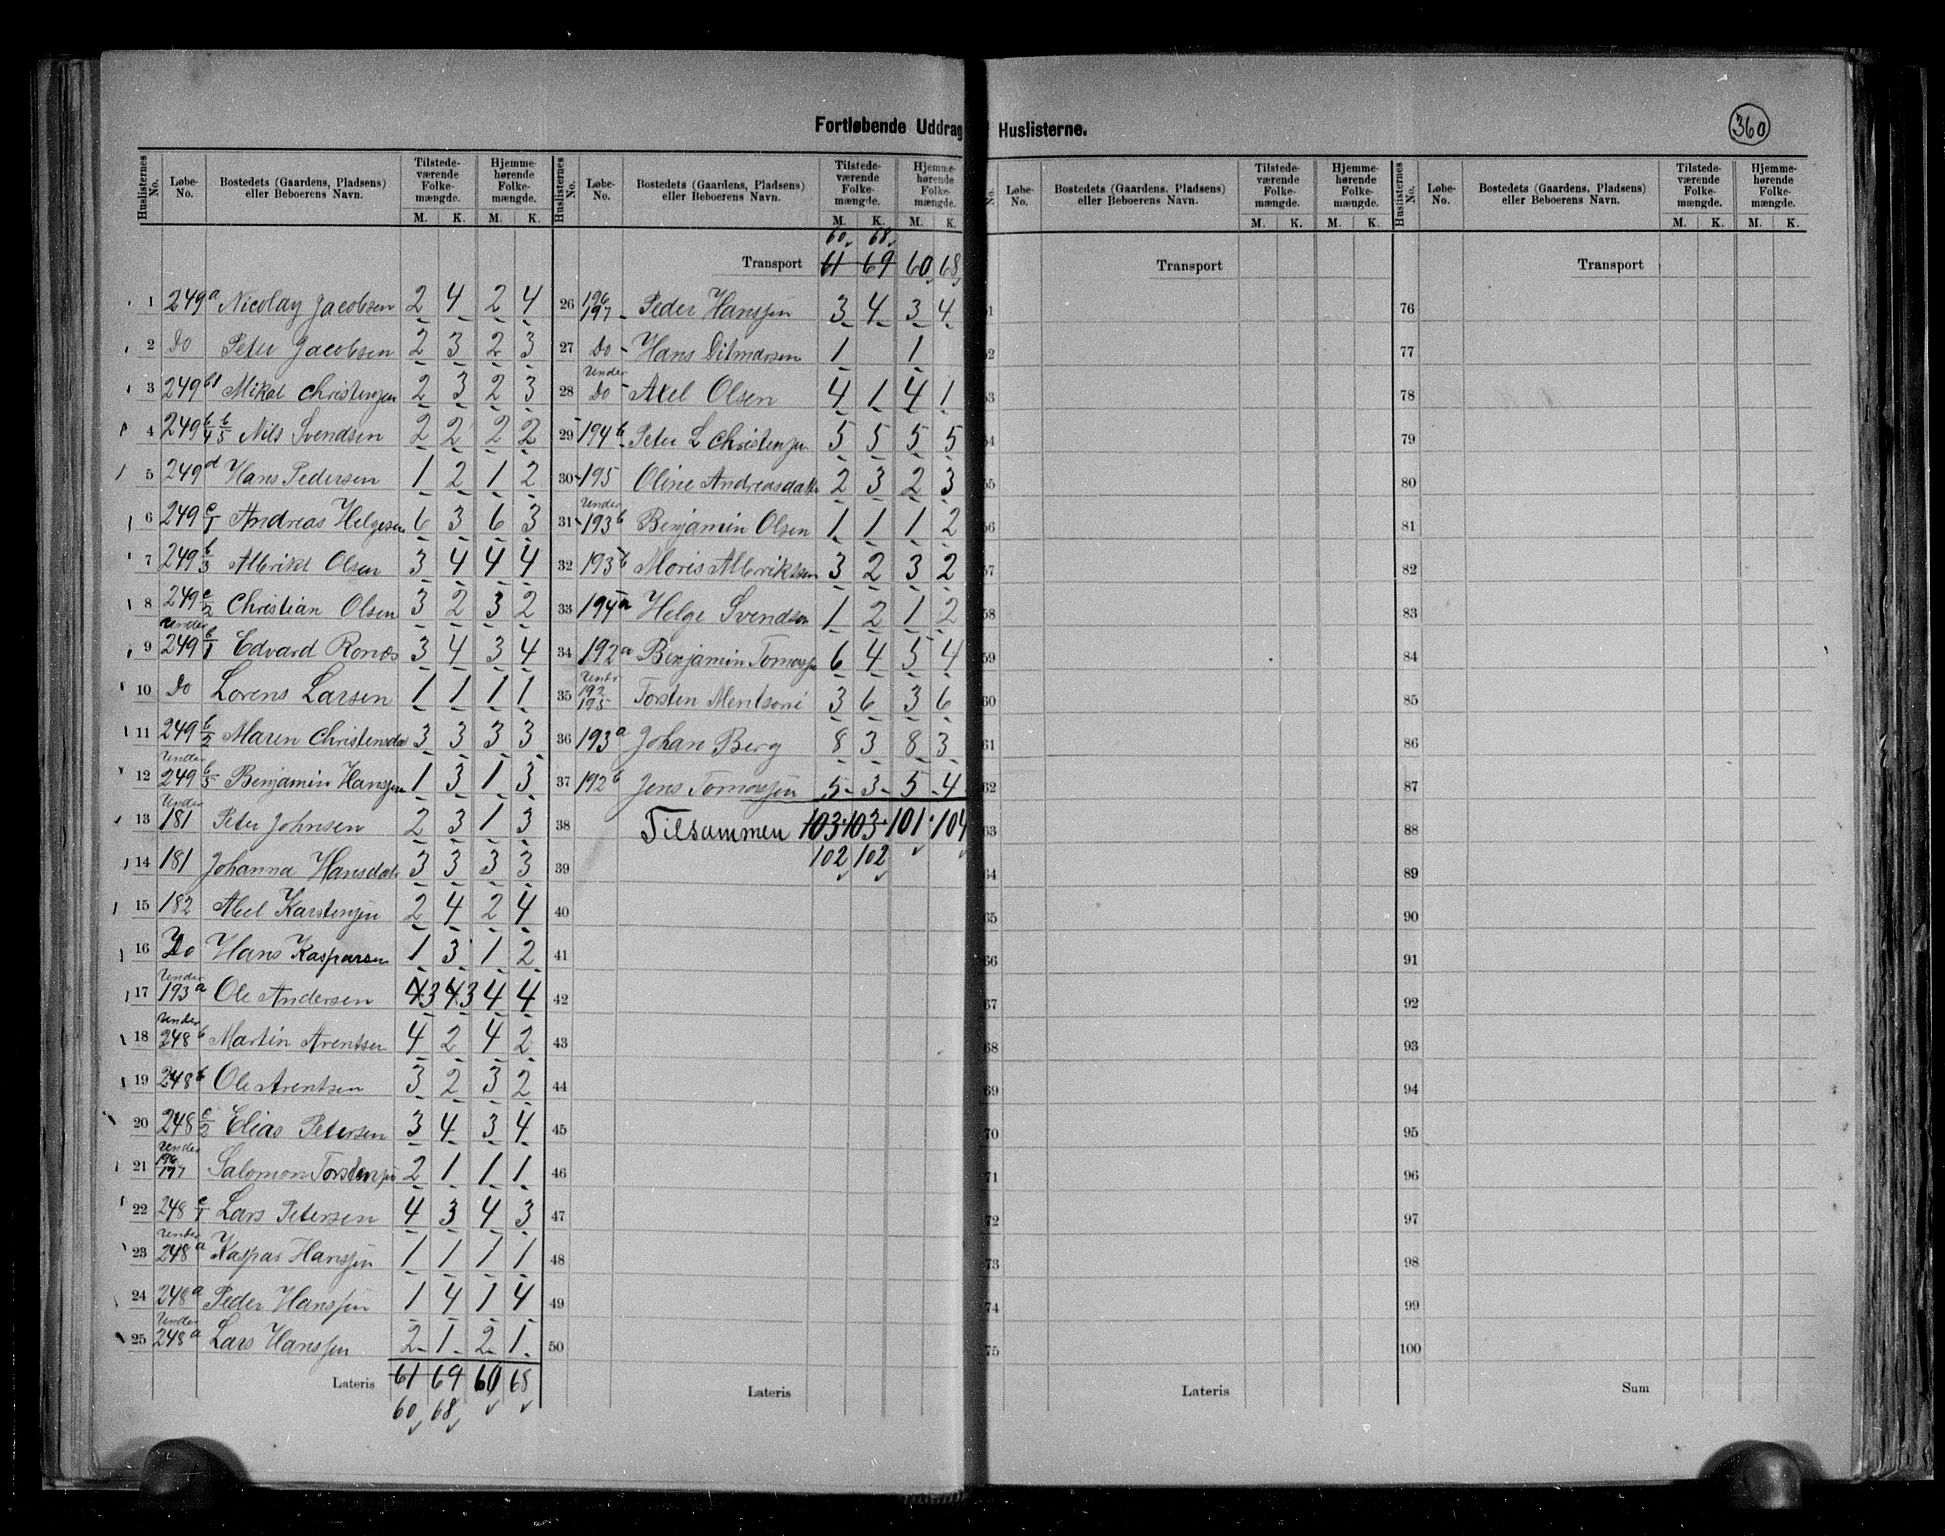 Fortløbende Uddrag Huslisterne.
360
Huslisternes No. | Løbe-No. | Bostedets (Gaardens, Pladsens) eller Beboerens Navn. | Tilstedeværende Folkemængde. M. K. | Hjemmehørende Folkemængde. M. K.
1 249a Nicolay Jacobsen 2 4 2 4
2 Do Peter Jacobsen 2 3 2 3
3 249 b1 Mikal Christensen 2 3 2 3
4 249 b/4 b/5 Nils Svendsen 2 2 2 2
5 249d Hans Pedersen 1 2 1 2
6 249 c/1 Andreas Helgesen 6 3 6 3
7 249 b/3 Albrikt Olsen 3 4 4 4
8 249 c/2 Christian Olsen 3 2 3 2
9 Under 249 b/1 Edvard Ronæs 3 4 3 4
10 Do Lorens Larsen 1 1 1 1
11 249 b/2 Maren Christensda 3 3 3 3
12 Under 249 b/5 Benjamin Hanssen 1 3 1 3
13 Under 181 Peter Johnsen 2 3 1 3
14 181 Johanna Hansdat 3 3 3 3
15 182 Abel Karstensen 2 4 2 4
16 Do Hans Kasparsen 1 3 1 2
17 Under 193a Ole Andersen 43 43 4 4
18 Under 248b Martin Arentsen 4 2 4 2
19 248b Ole Arentsen 3 2 3 2
20 248 c/2 Elias Petersen 3 4 3 4
21 Under 196/197 Salomon Torstensen 2 1 1 1
22 248 c/1 Lars Petersen 4 3 4 3
23 Under 248a Kaspar Hanssen 1 1 1 1
24 248a Peder Hanssen 1 4 1 4
25 Under 248a Lars Hanssen 2 1 2 1
Lateris 61 69 60 68
60 68
Huslisternes No. | Løbe-No. | Bostedets (Gaardens, Pladsens) eller Beboerens Navn. | Tilstedeværende Folkemængde. M. K. | Hjemmehørende Folkemængde. M. K.
60 68
Transport 61 69 60 68
26 196 197 Peder Hanssen 3 4 3 4
27 Do Hans Ditmarsen 1 1
28 Under Do Axel Olsen 4 1 4 1
29 194b Peter L Christensen 5 5 5 5
30 195 Oline Andreasdatt 2 3 2 3
31 Under 193b Benjamin Olsen 1 1 1 2
32 193b Moris Albriktsen 3 2 3 2
33 194a Helge Svendsen 1 2 1 2
34 192a Benjamin Tomassen 6 4 5 4
35 Under 192 195 Torsten Mentsoni 3 6 3 6
36 193a Johan Berg 8 3 8 3
37 192b Jens Tomassen 5 3 5 4
38 Tilsammen 103 103 101 104
102 102
39
40
41
42
43
44
45
46
47
48
49
50
Lateris
No. | Løbe-No. | Bostedets (Gaardens, Pladsens) eller Beboerens Navn. | Tilstedeværende Folkemængde. M. K. | Hjemmehørende Folkemængde. M. K.
Transport
51
52
53
54
55
56
57
58
59
60
61
62
63
64
65
66
67
68
69
70
71
72
73
74
75
Lateris
Huslisternes No. | Løbe-No. | Bostedets (Gaardens, Pladsens) eller Beboerens Navn. | Tilstedeværende Folkemængde. M. K. | Hjemmehørende Folkemængde. M. K.
Transport
76
77
78
79
80
81
82
83
84
85
86
87
88
89
90
91
92
93
94
95
96
97
98
99
100
Sum